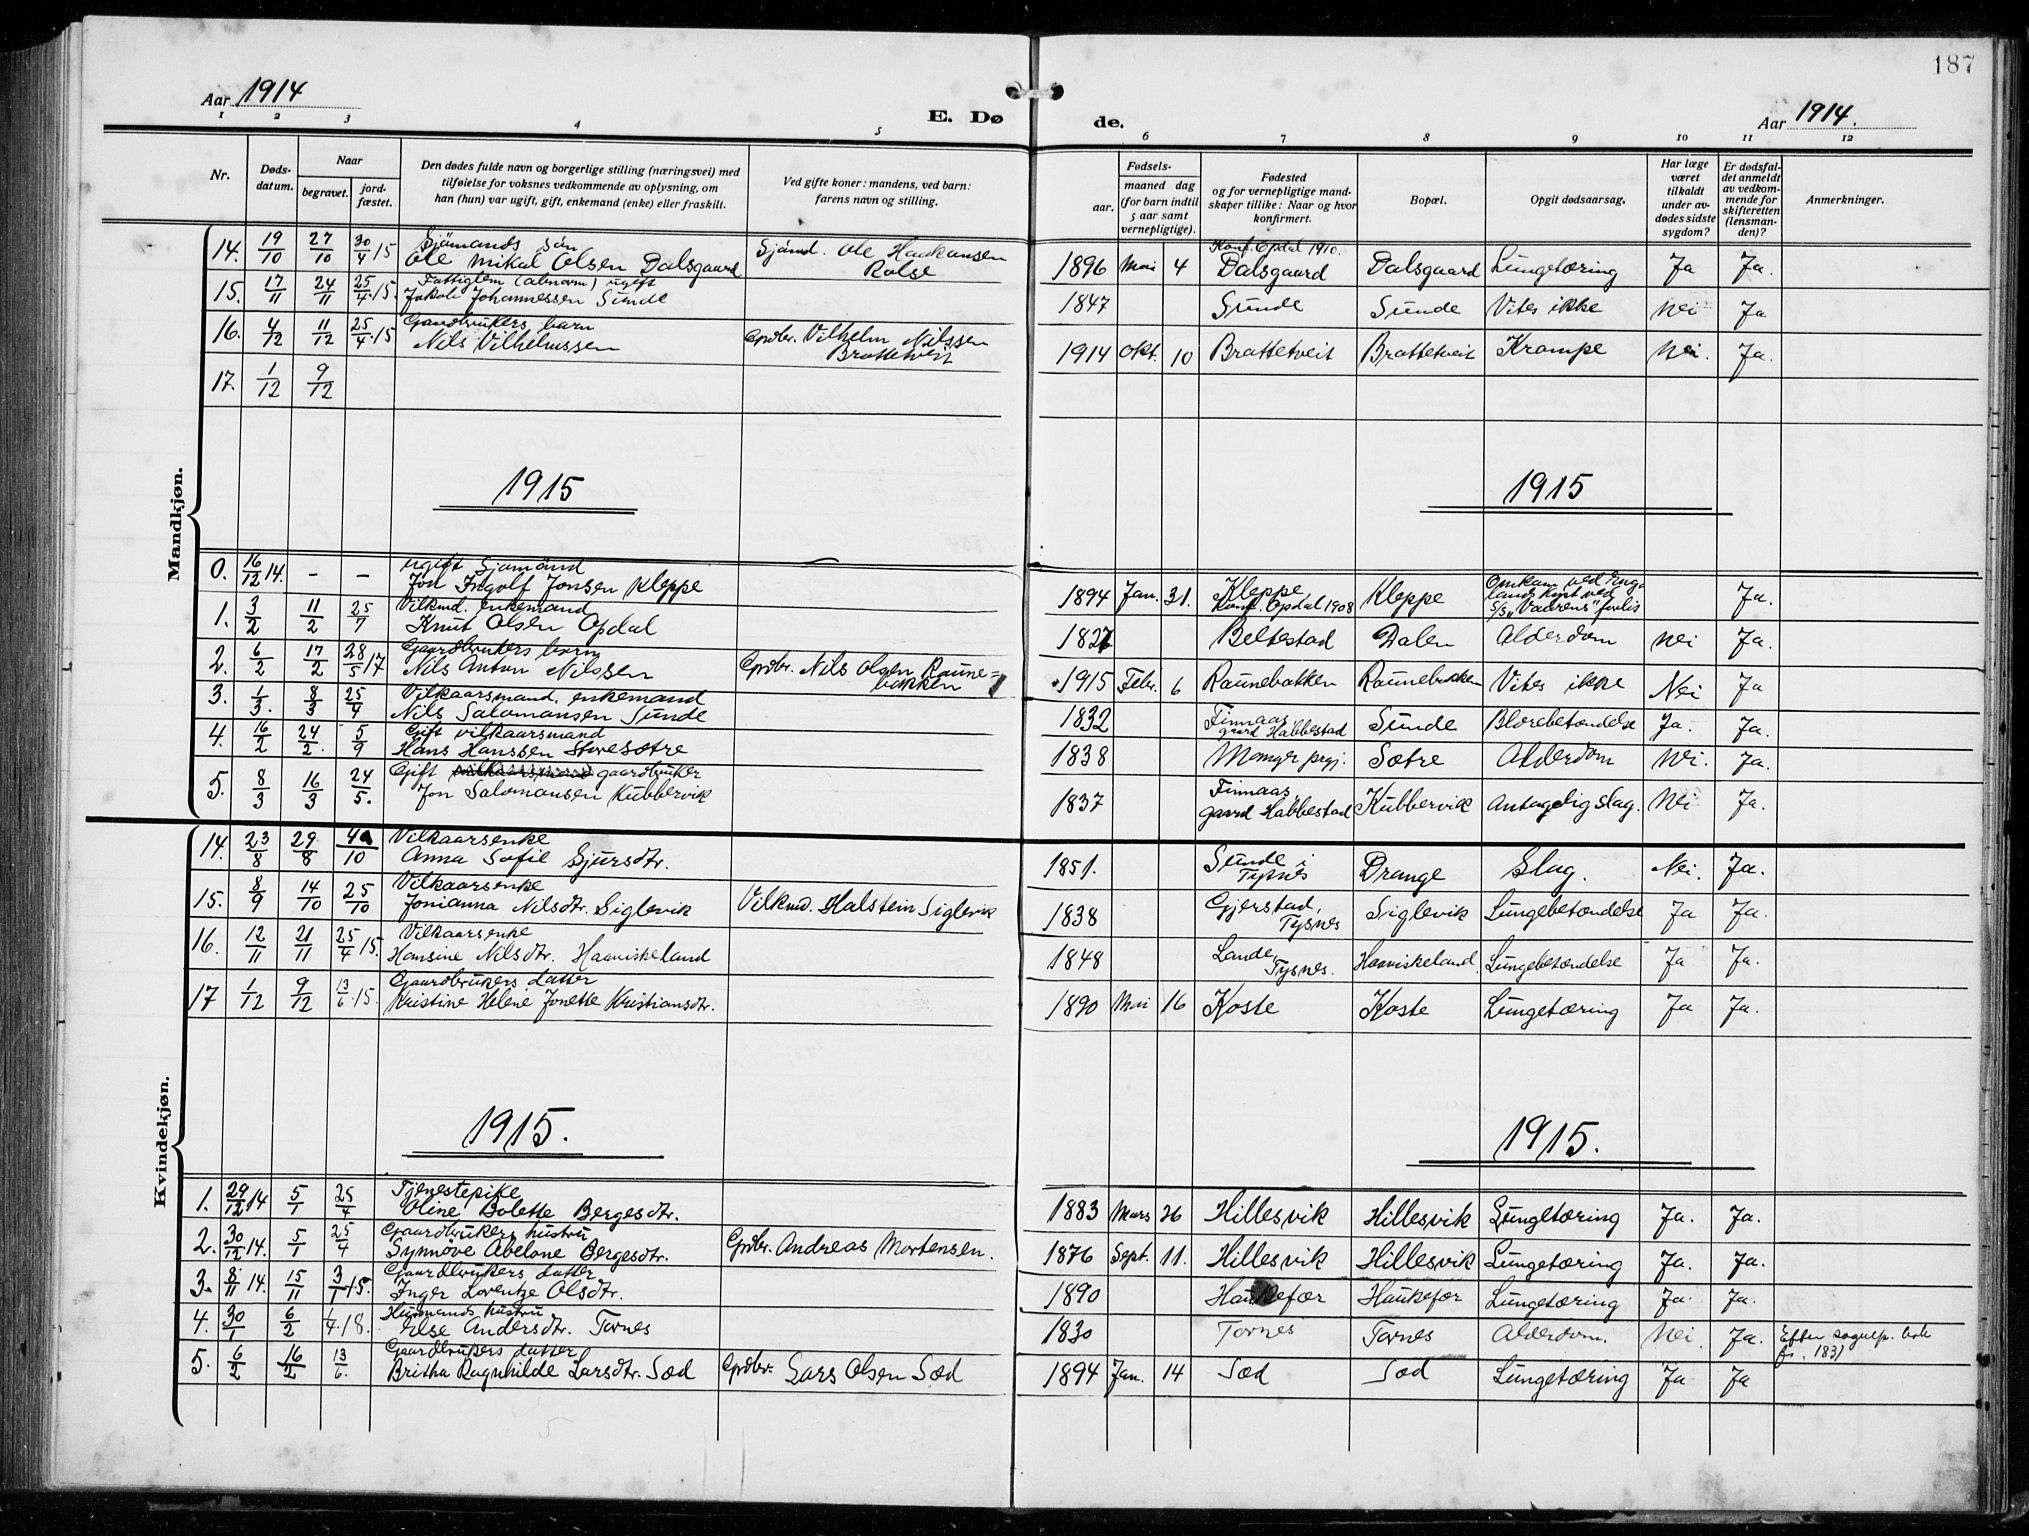 187
Aar 1914
E. Dø
de.
Aar 1914.
1 2 3 4 5 6 7 8 9 10 11 12
Nr.
Døds-
datum.
Naar
begravet.
jord-
fæstet.
Den dødes fulde navn og borgerlige stilling (næringsvei) med
tilføielse for voksnes vedkommende av oplysning, om
han (hun) var ugift, gift, enkemand (enke) eller fraskilt.
Ved gifte koner: mandens, ved barn:
farens navn og stilling.
Fødsels-
aar.
maaned dag
(for barn indtil
5 aar samt
vernepligtige).
Fødested
og for vernepligtige mand-
skaper tillike: Naar og hvor
konfirmert.
Bopæl.
Opgit dødsaarsag.
Har læge
været
tilkaldt
under av-
dødes sidste
sygdom?
Er dødsfal-
det anmeldt
av vedkom-
mende for
skifteretten
(lensman-
den)?
Anmerkninger.
Mandkjøn.
Sjömands sön Konf. Opdal 1910.
14. 19/10 27/10 30/4 15 Ole Mikal Olsen Dalsgaard Sjömd. Ole Haakansen 1896 Mai 4 Dalsgaard Dalsgaard Lungetæring Ja Ja.
Rolse
Fattiglem ugift
15. 17/11 24/11 25/4 15. Jakob Johannessen Sunde 1847 Sunde Sunde Vites ikke Nei Ja
Gaardbrukers barn
16. 4/12 11/12 25/4 15 Nils Vilhelmssen Grdbr. Vilhelm Nilssen 1914 Okt. 10 Brattetveit Brattetveit Krampe Nei. Ja.
Brattetveit
17. 1/12 9/12
1915 1915
ugift Sjömand
0. 16/12 14. - - Jon Ingolf Jonsen Kleppe 1894 Jan. 31. Kleppe Kleppe Omkom ved Eng- Ja.
Konf. Opdal 1908 lands kyst ved
S/S „Vaarens" forlis
Vilkmd. enkemand
1. 3/2 11/2 25/7 Knut Olsen Opdal 1827 Beltestad Dalen Alderdom Nei Ja.
Gaardbrukers barn
2. 6/2 17/2 28/5 17 Nils Anton Nilssen Grdbr. Nils Olsen Raune= 1915 Febr. 6 Raunebakken Raunebakken Vites ikke Nei Ja
bakken
Vilkaarsmand, enkemand
3. 1/3. 8/3 25/4 Nils Salomonsen Sunde 1832 Finnaas Sunde Blærebetændelse Ja. Ja.
gaard Habbestad
Gift vilkaarsmand
4. 16/2 24/2. 5/9 Hans Hanssen Storesætre 1838 Manger prgj. Sætre Alderdom Nei. Ja.
Gift vilkaarsmand gaardbruker
5. 8/3 16/3 24/5. Jon Salomonsen Kubbervik 1837 Finnaas Kubbervik Antagelig slag. Nei Ja.
gaard Habbestad
Kvindekjøn.
Vilkaarsenke
14. 23/8 29/8 4/10 Anna Sofie Sjursdtr. 1851. Sunde i Drange Slag. Nei. Ja.
Tysnes
Vilkaarsenke
15. 8/9 14/10 25/10 Jonianna Nilsdtr. Siglevik Vilkmd. Halstein Siglevik 1838 Gjerstad, Siglevik Lungebetændelse Ja Ja.
Tysnes
Vilkaarsenke
16. 12/11 21/11 25/4 15. Hansine Nilsdtr. Haaviskeland 1848 Lande Haaviskeland. Lungebetændelse Ja Ja.
Tysnes.
Gaardbrukers datter
17 1/12 9/12 13/6 15. Kristine Helene Jonette Kristiansdtr. 1890 Mai 16 Koste Koste Lungetæring Ja Ja.
1915. 1915.
Tjenestepike
1. 29/12 14 5/1 25/4 Oline Bolette Bergesdtr. 1883 Mars 26 Hillesvik Hillesvik Lungetæring Ja. Ja.
Gaardbrukers hustru
2. 30/12 14. 5/1 25/4 Synnöve Abelone Bergesdtr. Grdbr. Andreas Mortensen. 1876 Sept. 11. Hillesvik Hillesvik Lungetæring Ja. Ja.
Gaardbrukers datter
3. 8/11 14. 15/11 3/1 15. Inger Lorentze Olsdtr. 1890 Haukefær Haukefær Lungetæring Ja. Ja.
Husmands hustru
4. 30/1 6/2 1/4 18. Else Andersdtr. Tornes 1830 Tornes Tornes Alderdom. Nei. Ja. Efter sognep. bok
f. 1831
Gaardbrukers datter
5. 6/2 16/2 13/6. Britha Ragnhilde Larsdtr. Sæd Grdbr. Lars Olsen Sæd 1894 Jan. 14 Sæd Sæd Lungetæring Ja Ja